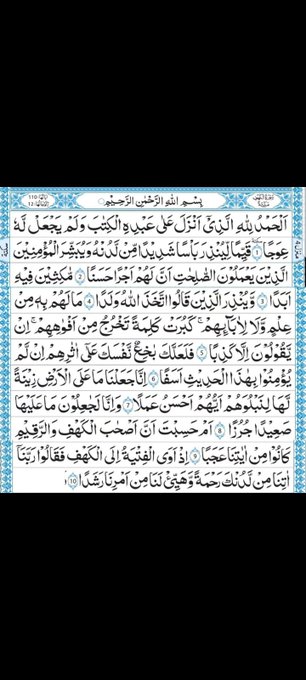 بِسْمِ اللهِ الرَّحْمٰنِ الرَّحِيْمِ
اَلْحَمْدُ لِلّٰهِ الَّذِيْٓ اَنْزَلَ عَلٰى عَبْدِهِ الْكِتٰبَ وَلَمْ يَجْعَلْ لَّهٗ
عِوَجًا ۱ قَيِّمًا لِّيُنْذِرَ بَاْسًا شَدِيْدًا مِّنْ لَّدُنْهُ وَيُبَشِّرَ الْمُؤْمِنِيْنَ
الَّذِيْنَ يَعْمَلُوْنَ الصّٰلِحٰتِ اَنَّ لَهُمْ اَجْرًا حَسَنًا ۲ مَّاكِثِيْنَ فِيْهِ
اَبَدًا ۳ وَّيُنْذِرَ الَّذِيْنَ قَالُوا اتَّخَذَ اللهُ وَلَدًا ۴ مَا لَهُمْ بِهٖ مِنْ
عِلْمٍ وَّلَا لِاٰبَآىِٕهِمْ ؕ كَبُرَتْ كَلِمَةً تَخْرُجُ مِنْ اَفْوَاهِهِمْ ؕ اِنْ
يَّقُوْلُوْنَ اِلَّا كَذِبًا ۵ فَلَعَلَّكَ بَاخِعٌ نَّفْسَكَ عَلٰٓى اٰثَارِهِمْ اِنْ لَّمْ
يُؤْمِنُوْا بِهٰذَا الْحَدِيْثِ اَسَفًا ۶ اِنَّا جَعَلْنَا مَا عَلَى الْاَرْضِ زِيْنَةً
لَّهَا لِنَبْلُوَهُمْ اَيُّهُمْ اَحْسَنُ عَمَلًا ۷ وَاِنَّا لَجٰعِلُوْنَ مَا عَلَيْهَا
صَعِيْدًا جُرُزًا ۸ اَمْ حَسِبْتَ اَنَّ اَصْحٰبَ الْكَهْفِ وَالرَّقِيْمِ
كَانُوْا مِنْ اٰيٰتِنَا عَجَبًا ۹ اِذْ اَوَى الْفِتْيَةُ اِلَى الْكَهْفِ فَقَالُوْا رَبَّنَآ
اٰتِنَا مِنْ لَّدُنْكَ رَحْمَةً وَّهَيِّئْ لَنَا مِنْ اَمْرِنَا رَشَدًا ۱۰